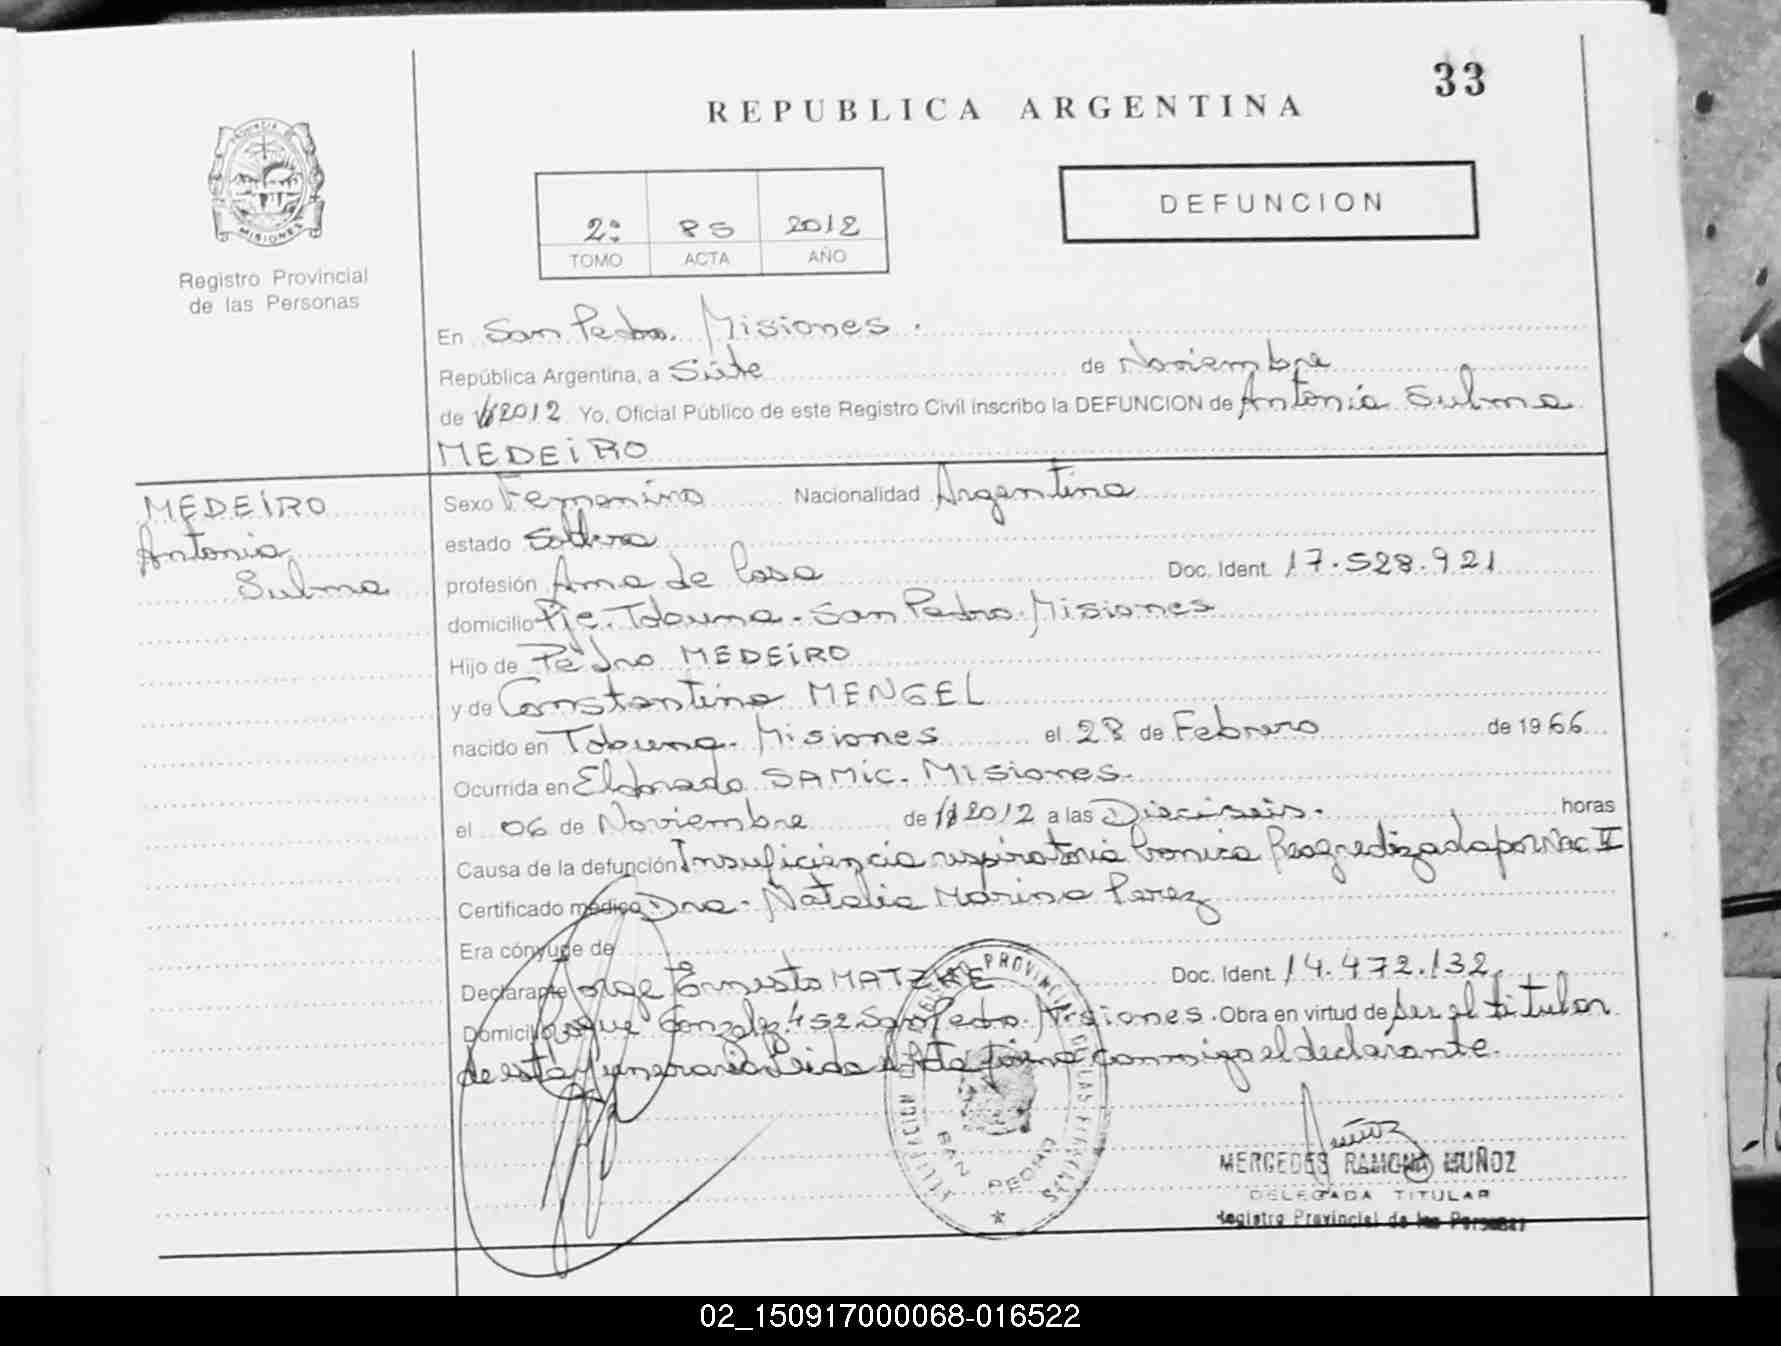 33
REPUBLICA ARGENTINA
DEFUNCION
2º 85 2012
TOMO ACTA AÑO
PROVINCIA DE
MISIONES
Registro Provincial
de las Personas
En San Pedro. Misiones.
República Argentina, a Siete de Noviembre
de 2012 Yo, Oficial Público de este Registro Civil inscribo la DEFUNCION de Antonia Sulma
MEDEiRO
MEDEiRO
Antonia
Sulma
Sexo Femenino Nacionalidad Argentina
estado Soltera
profesión Ama de Casa Doc. Ident. 17.528.921
domicilio Pje. Tobuna. San Pedro. Misiones
Hijo de Pedro MEDEiRO
y de Constantina MENGEL
nacido en Tobuna. Misiones el 28 de Febrero de 1966
Ocurrida en Eldorado SAMiC. Misiones.
el 06 de Noviembre de 2012 a las Dieciseis. horas
Causa de la defunción Insuficiencia respiratoria Cronica Reagredizada por Nac IV
Certificado médico Dra. Natalia Marina Perez
Era cónyuge de
Declarante Jorge Ernesto MATZKE Doc. Ident. 14.472.132
Domicilio Roque Gonzalez 452. San Pedro. Misiones. Obra en virtud de ser el titular
de esta funeraria Leida el Acta firma conmigo el declarante.
DELEGACION REGISTRO PROVINCIAL DE LAS PERSONAS
SAN PEDRO
MERCEDES RAMONA MUÑOZ
DELEGADA TITULAR
Registro Provincial de las Personas
02_150917000068-016522